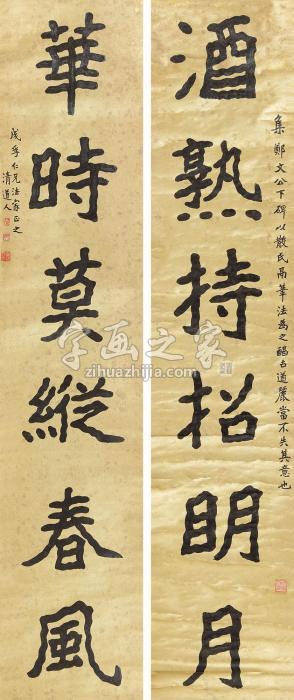 集鄭文公下碑以散氏鬲筆法為之古遒麗當不失其意也
酒熟持招明月
華時莫縱春風
茂孚仁兄法家正之
清道人
字画之家
zihuazhijia.com